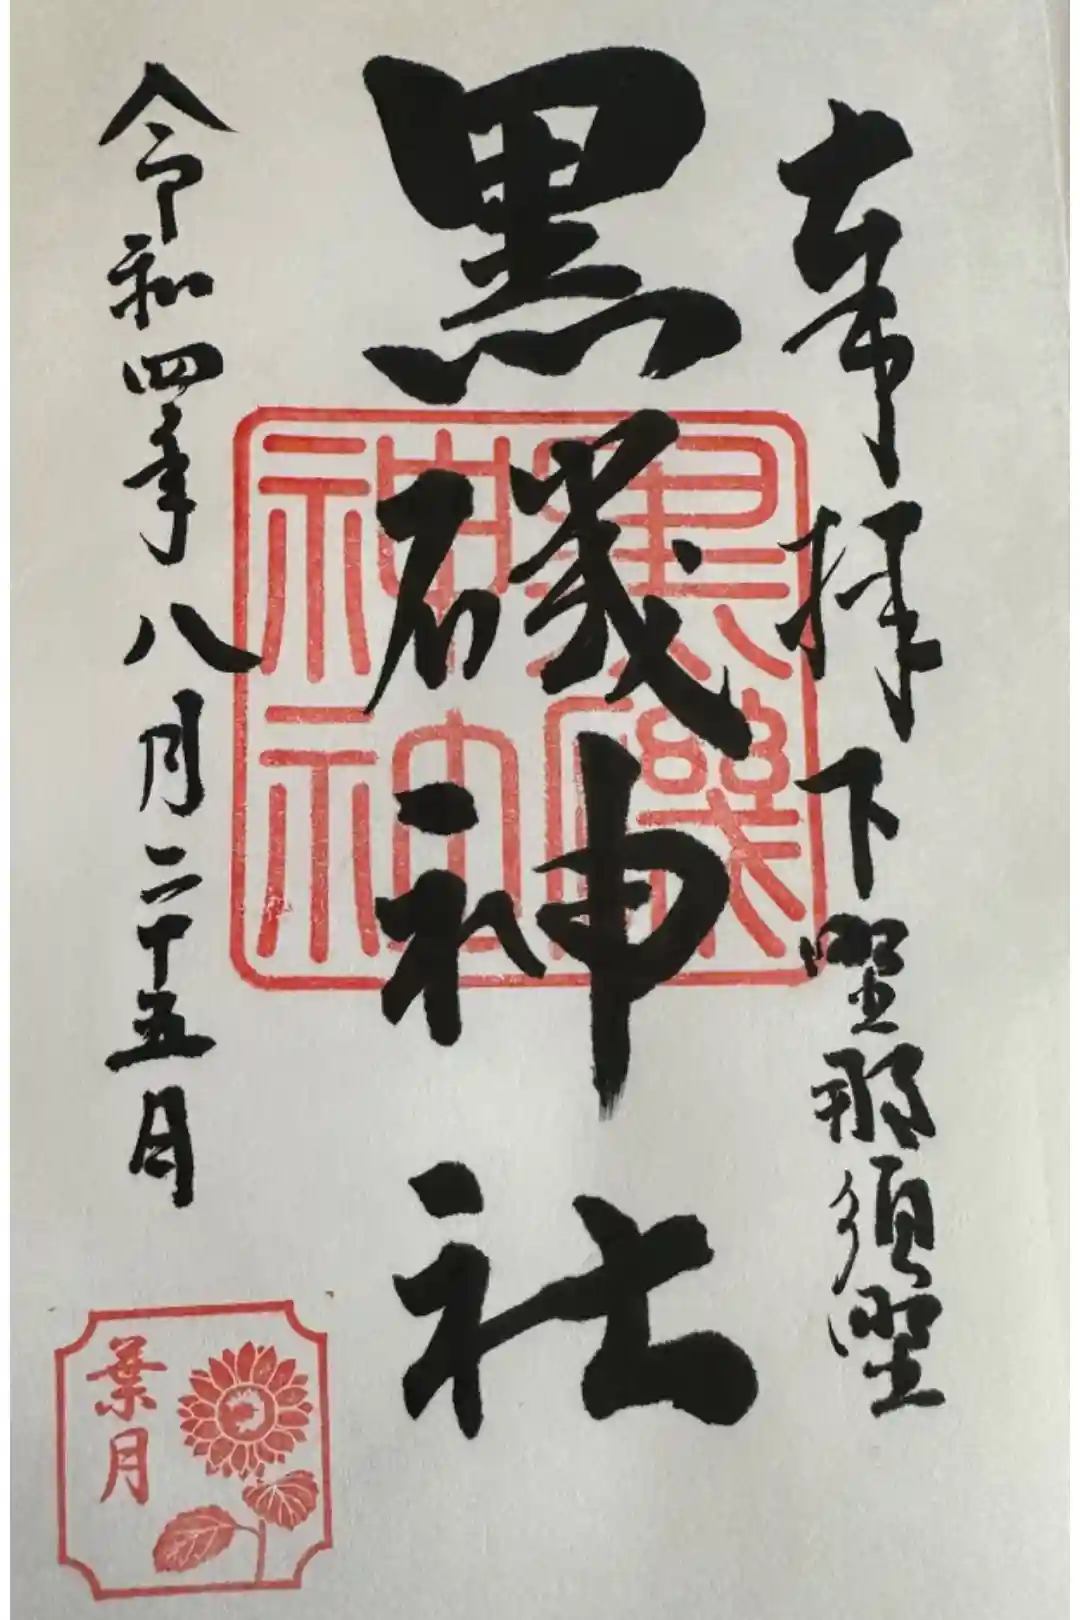 奉拝 下野那須野
黒磯神社
黒磯神社
令和四年八月二十五日
葉月